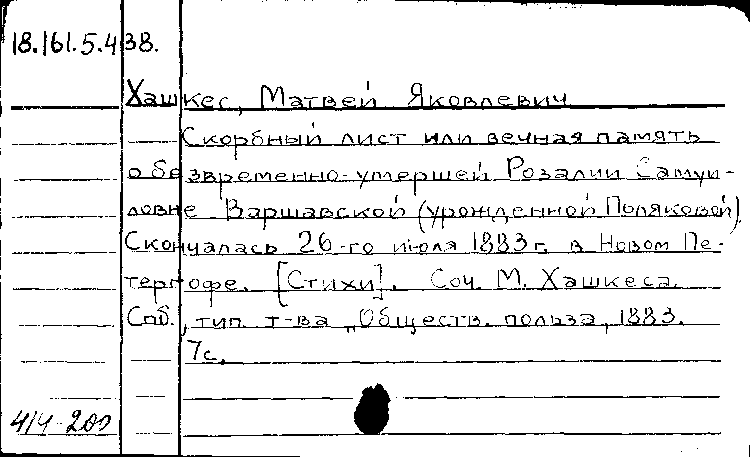 18.161.5.438.
Хашкес, Матвей Яковлевич
Скорбный лист или вечная память
о безвременно-умершей Розалии Самуи-
ловне Варшавской (урожденной Поляковой).
Скончалась 26-го июля 1883 г. в Новом Пе-
тергофе. [Стихи]. Соч. М. Хашкеса.
Спб., тип. т-ва "Обществ. польза", 1883.
7с.
414-200